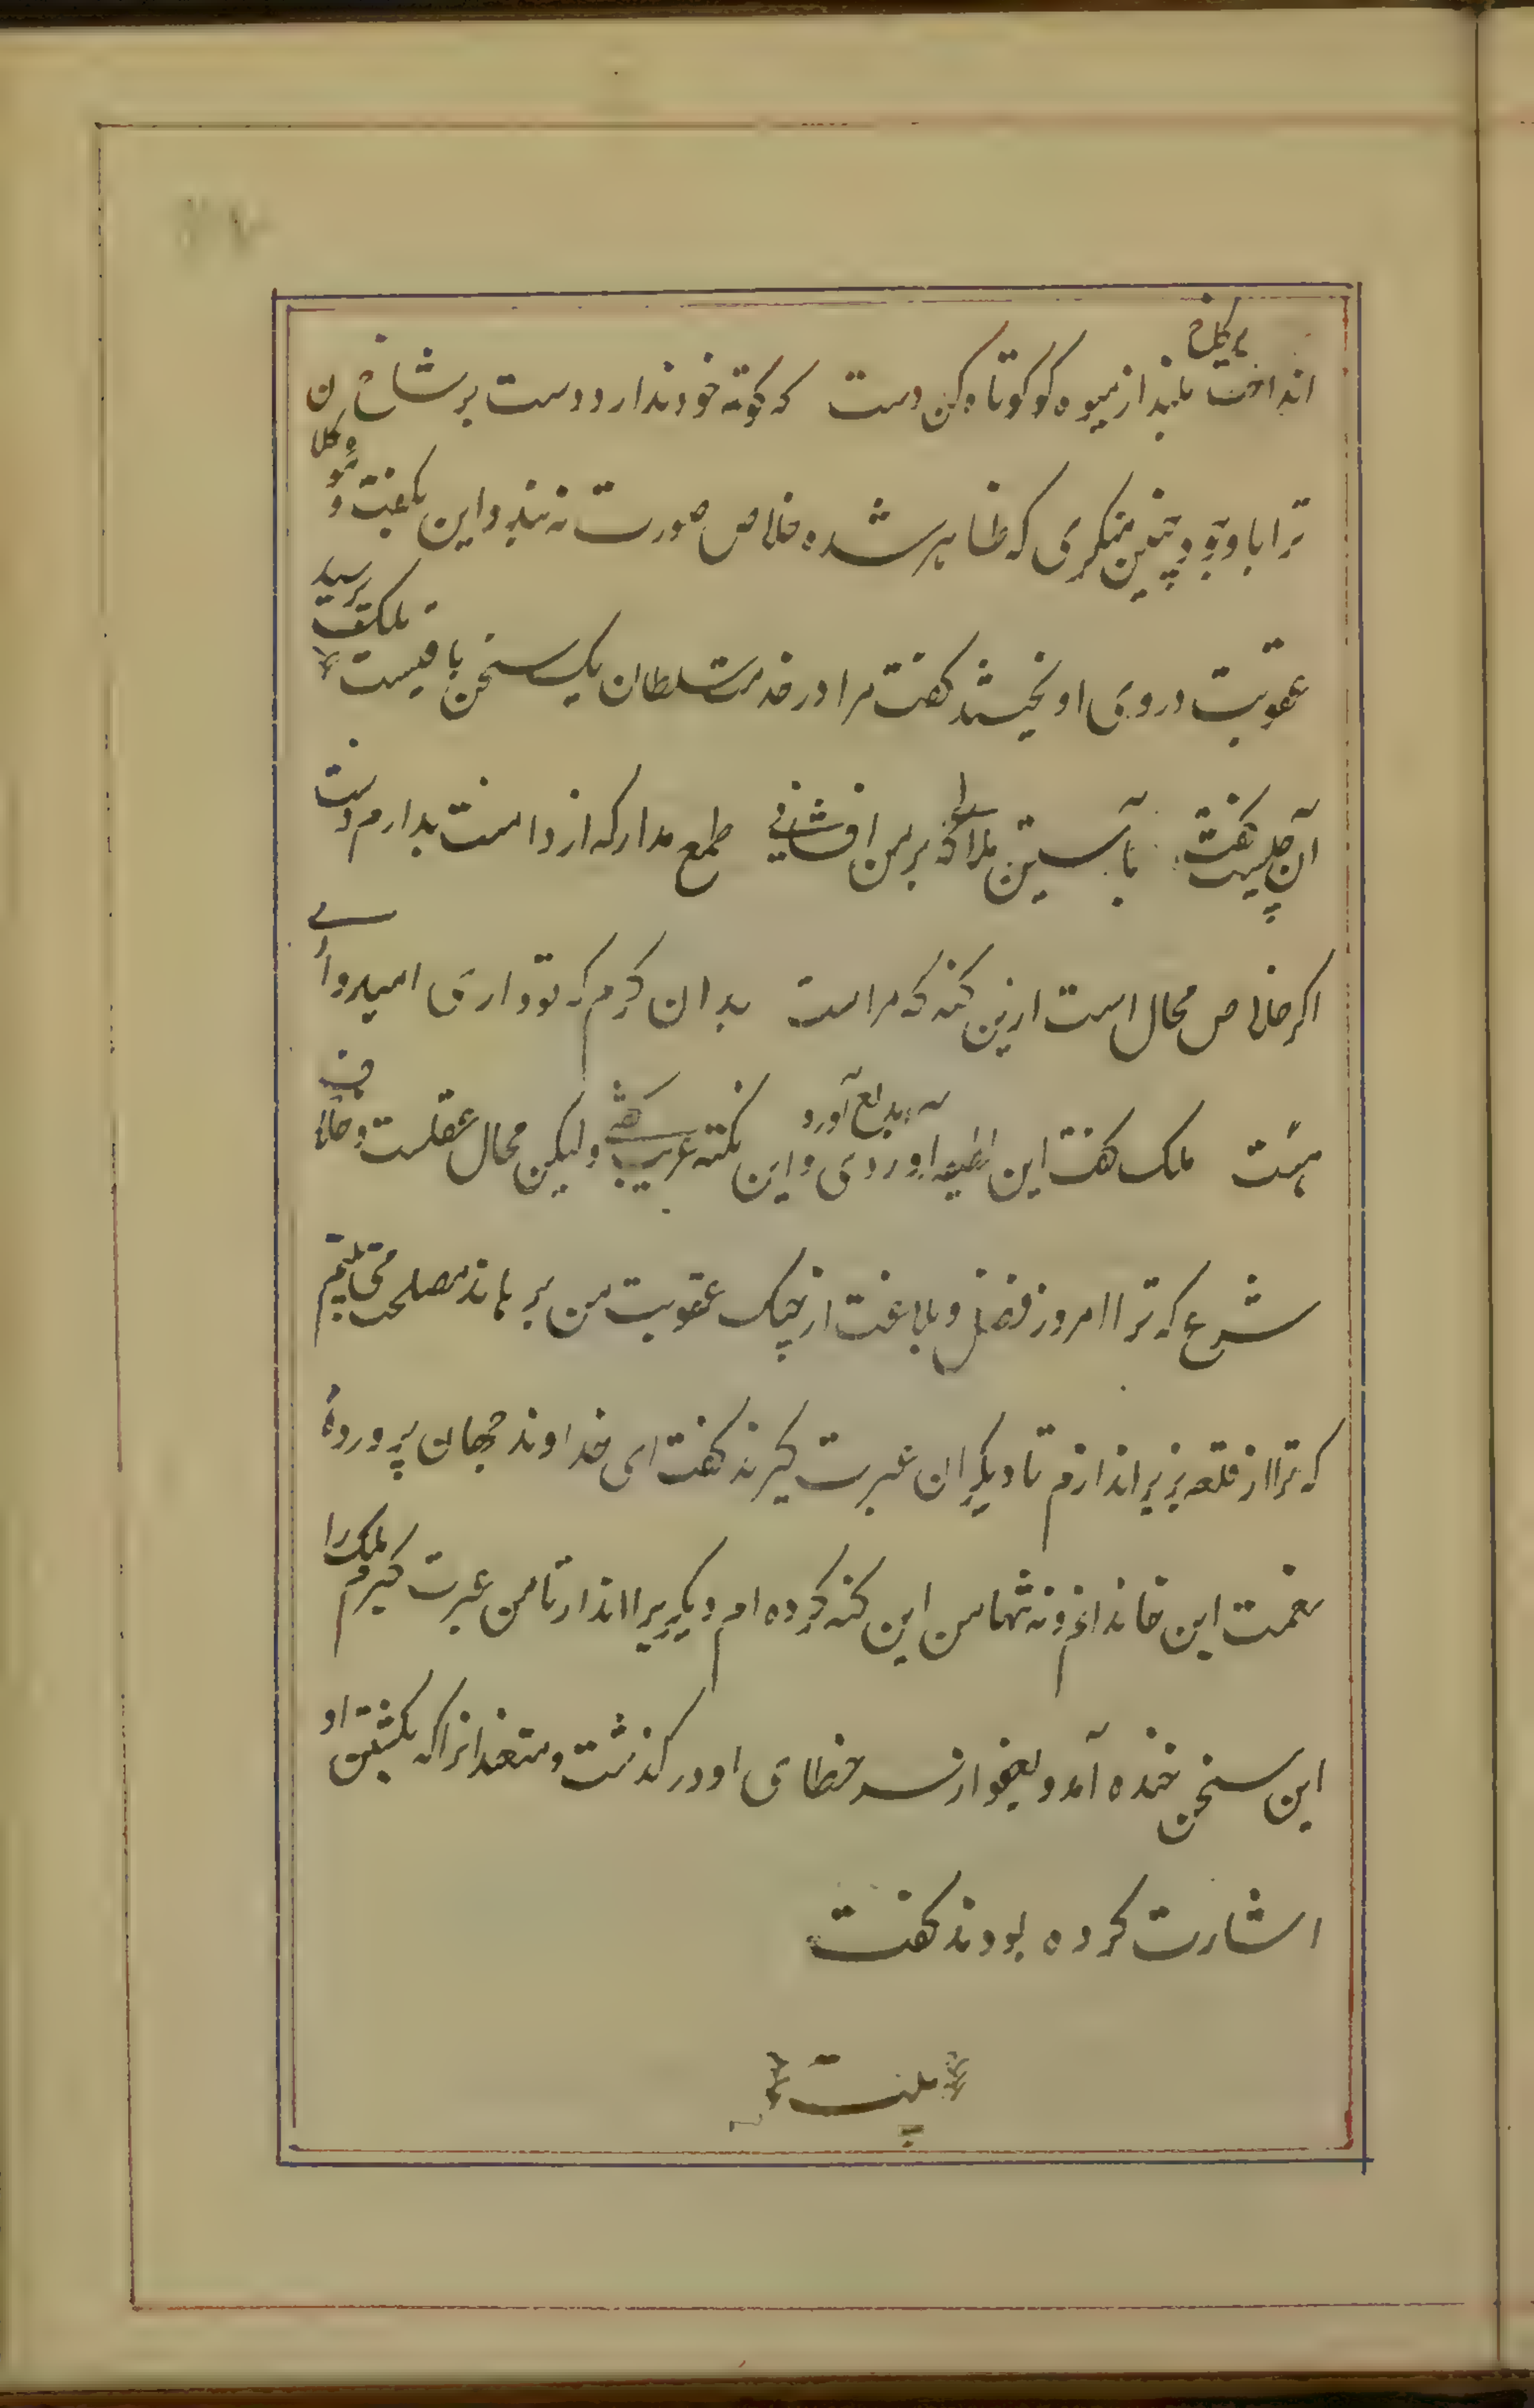 انداخت بر کاخ بلند از میوه کو کوتاه کن دست که کوته خود ندارد دست بر شاخ
ترا با وجود چنین منکری که ظاهر شده خلاص صورت نه بندد این بگفت و موکلان
عقوبت در وی اویختند گفت مرا در خدمت سلطان یک سخن باقیست ملک پرسید
آن چیست گفت بآستین ملالی که بر من افشانی طمع مدار که از دامنت بدارم دست
اگر خلاص محال است ازین گنه که مراست بدان کرم که تو داری امیدواری
هست ملک گفت این لطیفه بدیع آوردی و این نکته غریب گفتی ولیکن محال عقلست و خلاف
شرع که ترا امروز فضل و بلاغت از چنگ عقوبت من برهاند مصلحت
که ترا از قلعه بزیر اندازم تا دیگران عبرت گیرند گفت ای خداوند جهان پروردۀ
نعمت این خاندانم و نه تنها من این گنه کرده ام دیگریرا انداز تا من عبرت گیرم ملک را
این سخن خنده آمد و بعفو از سر خطای او در گذشت و متعندانرا که بکشتن او
اشارت کرده بودند گفت
بیت